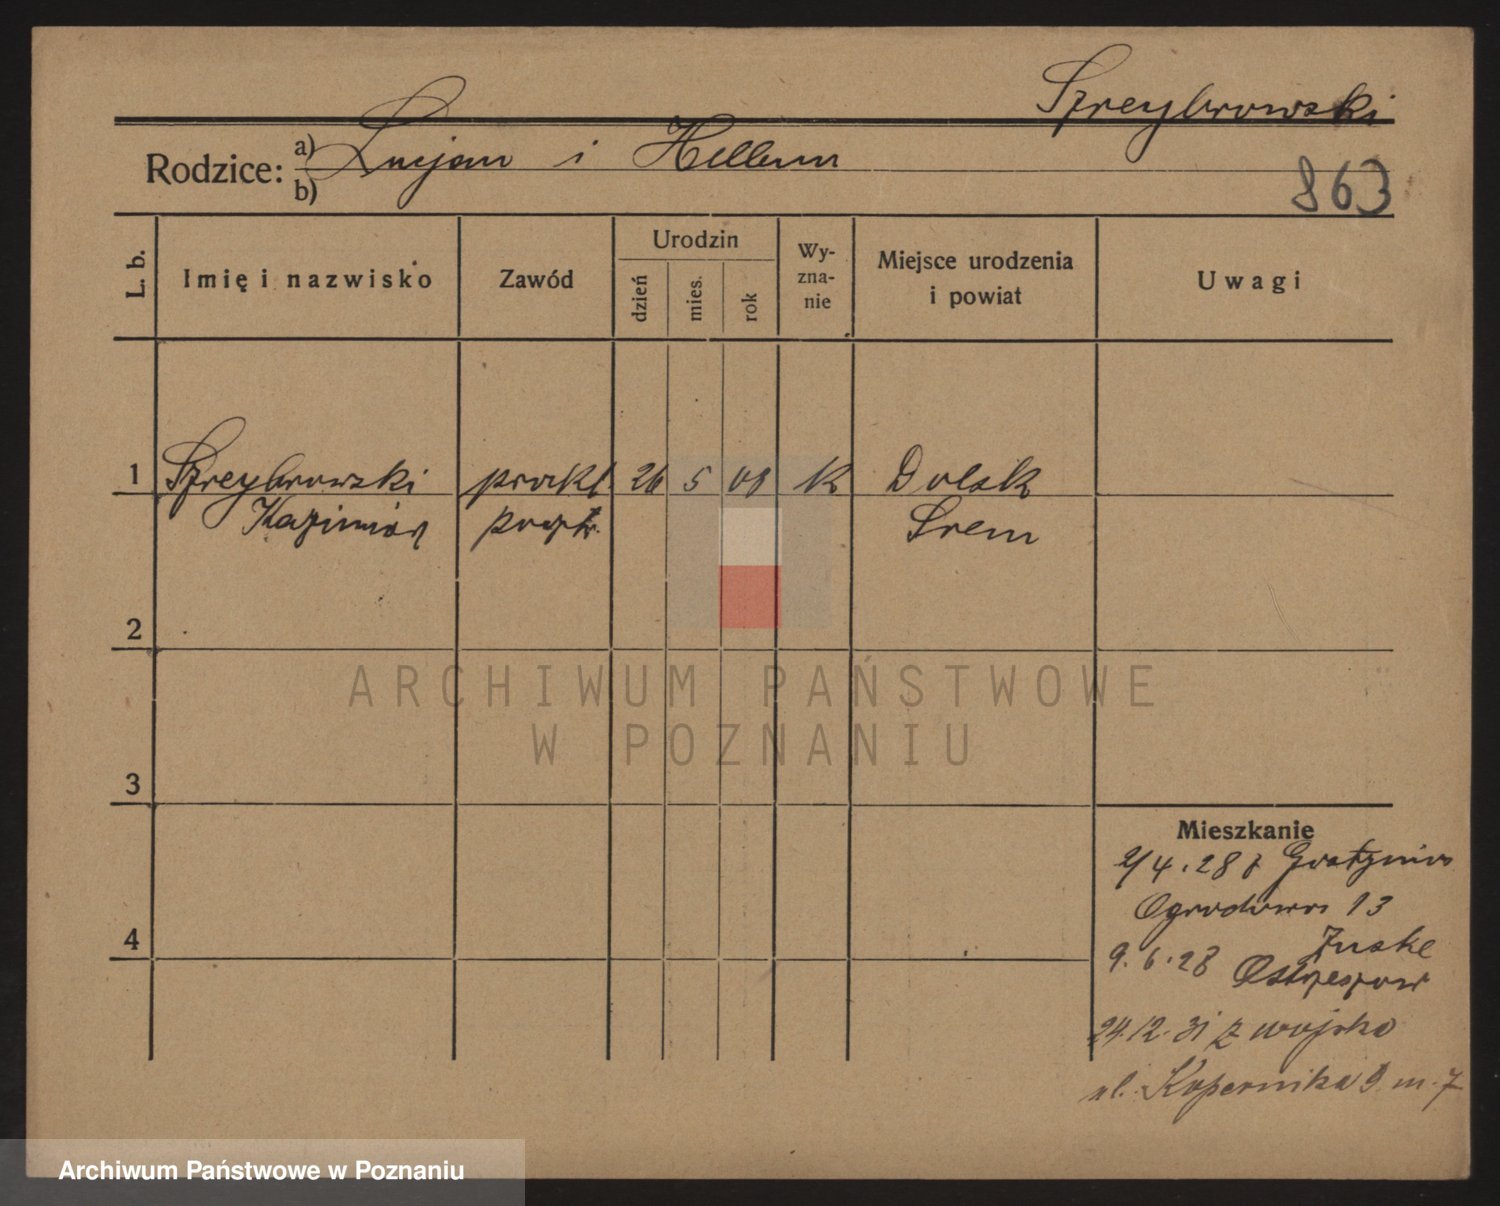 Szreybrowski
Rodzice: a) Lucjan i Hellena
b)
863
L. b.
Imię i nazwisko
Zawód
Urodzin
dzień
mies.
rok
Wy-
zna-
nie
Miejsce urodzenia
i powiat
Uwagi
1 Szreybrowski prakt. 26 5 08 K Dolsk
Kazimierz poczt. Srem
2
3
4
Mieszkanie
2/4.28 z Gostynia
Ogrodowa 13
9.6.28
Ostrzeszow
24.12.31 z wojska
ul. Kopernika 9 m. 7
ARCHIWUM PAŃSTWOWE
W POZNANIU
Archiwum Państwowe w Poznaniu